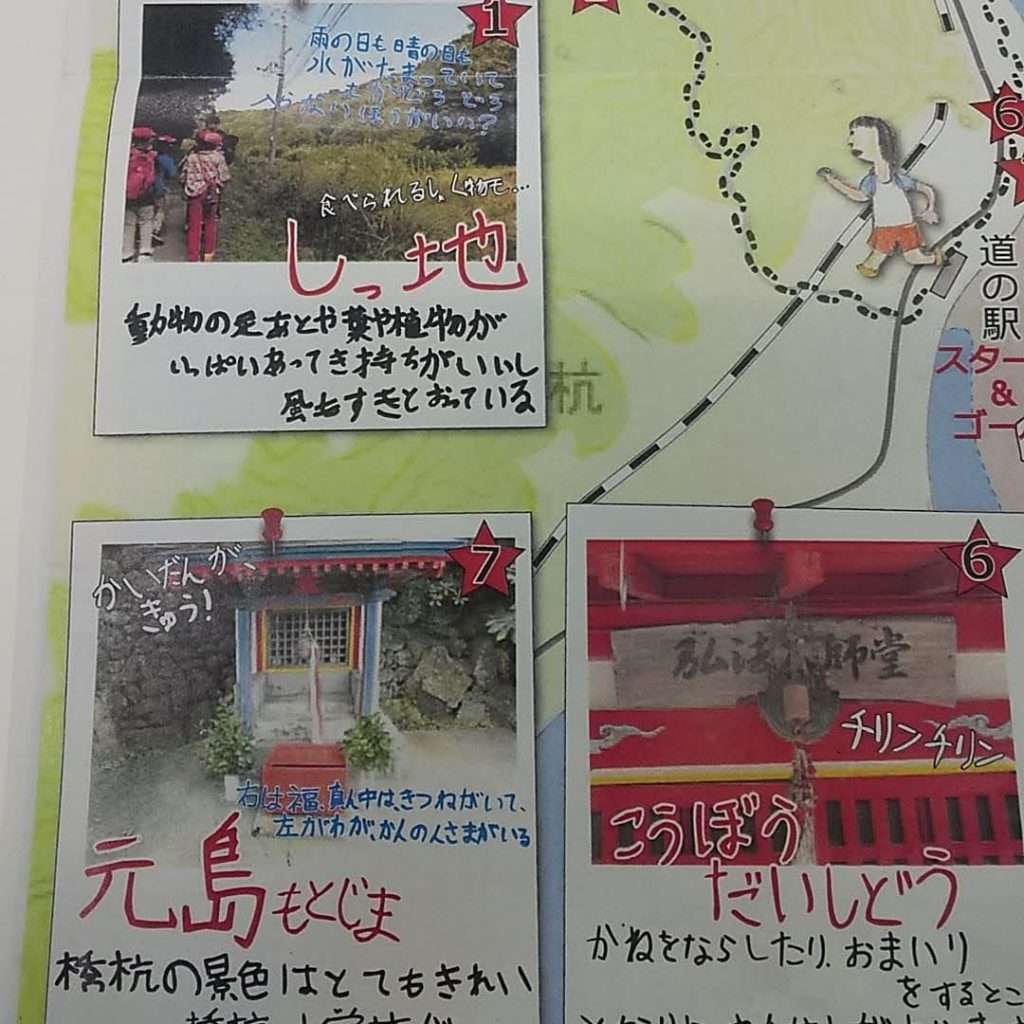 1
雨の日も晴の日も
水がたまっていて
いつもどろどろ
入らないほうがいい?
食べられるしょく物も…
しっ地
動物の足あとや葉や植物が
いっぱいあってき持ちがいいし
風もすきとおっている
6
道の駅
スター
&
ゴー
杭
7
かいだんが、
きゅう!
右は福、真ん中は、きつねがいて、
左がわが、かんのんさまがいる
元島もとじま
橋杭の景色はとてもきれい
6
弘法大師堂
チリンチリン
こうぼう
だいしどう
かねをならしたり、おまいり
をするとこ